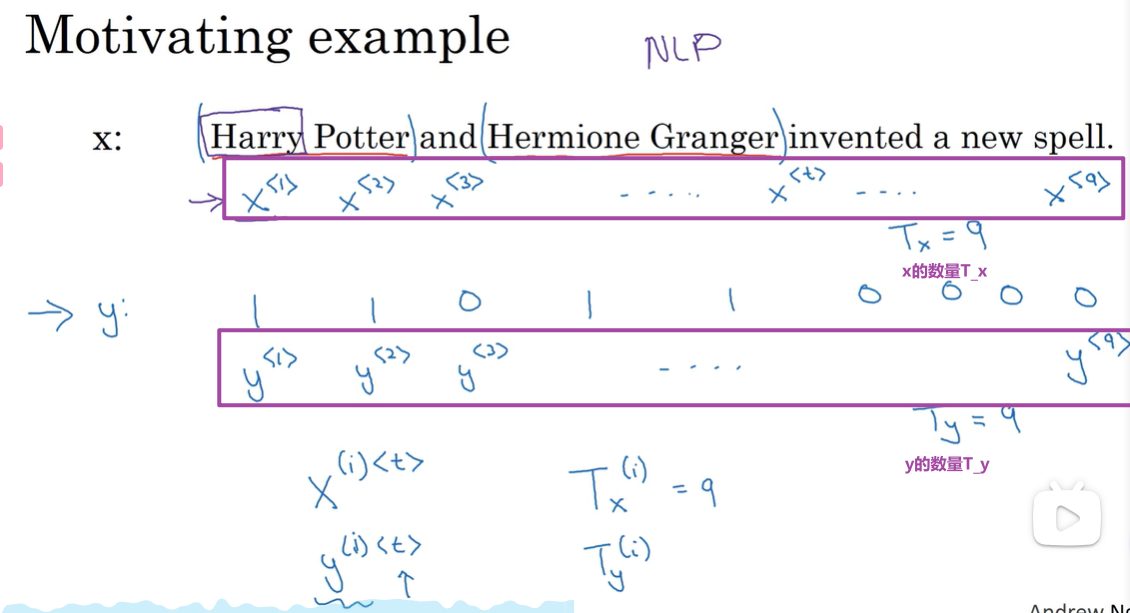 Motivating example
NLP
x: (Harry Potter) and (Hermione Granger) invented a new spell.
→ x<1> x<2> x<3> ..... x<t> .... x<9>
Tx = 9
x的数量T_x
→ y: 1 1 0 1 1 0 0 0 0
y<1> y<2> y<3> ..... y<9>
Ty = 9
y的数量T_y
X(i)<t> Tx(i) = 9
y(i)<t> Ty(i)
↑
Andrew